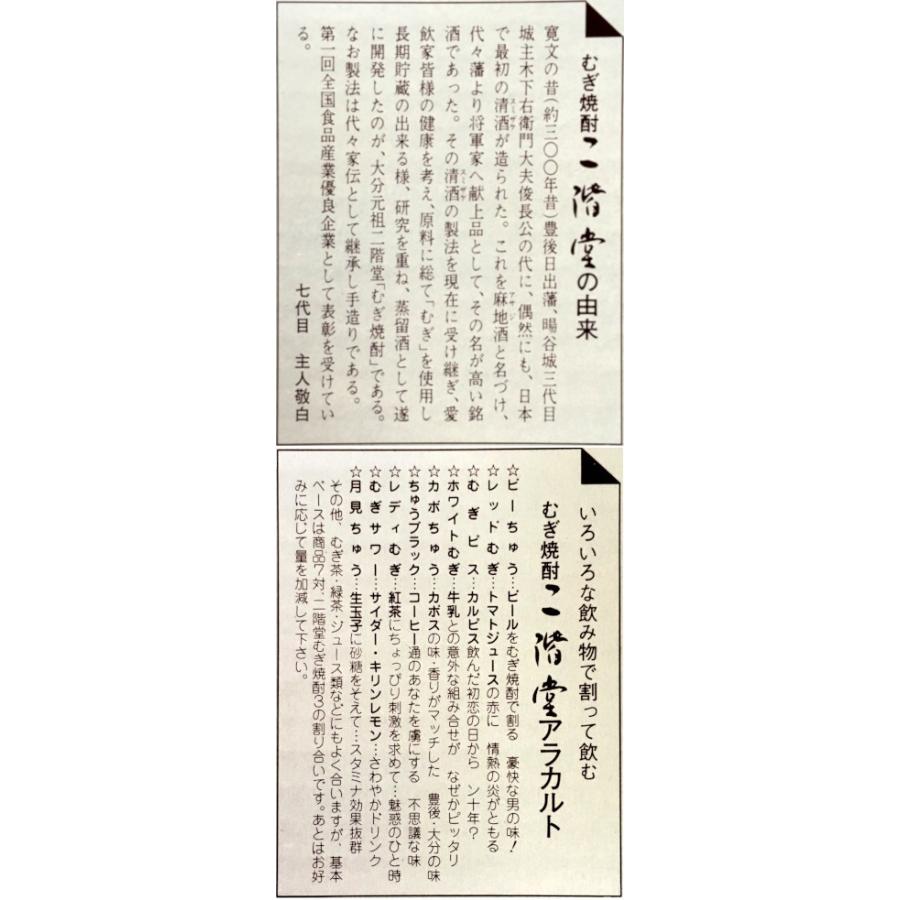 むぎ焼酎二階堂の由来
寛文の昔(約三〇〇年昔)豊後日出藩、暘谷城三代目
城主木下右衛門大夫俊長公の代に、偶然にも、日本
で最初の清酒が造られた。これを麻地酒と名づけ、
スミザケ
アサジ
代々藩より将軍家へ献上品として、その名が高い銘
酒であった。その清酒の製法を現在に受け継ぎ、愛
スミザケ
飲家皆様の健康を考え、原料に総て「むぎ」を使用し
長期貯蔵の出来る様、研究を重ね、蒸留酒として遂
に開発したのが、大分元祖二階堂「むぎ焼酎」である。
なお製法は代々家伝として継承し手造りである。
第一回全国食品産業優良企業として表彰を受けてい
る。
七代目 主人敬白
いろいろな飲み物で割って飲む
むぎ焼酎二階堂アラカルト
☆ビーちゅう…ビールをむぎ焼酎で割る 豪快な男の味!
☆レッドむぎ…トマトジュースの赤に 情熱の炎がともる
☆むぎピス…カルピス飲んだ初恋の日から ン十年?
☆ホワイトむぎ…牛乳との意外な組み合せが なぜかピッタリ
☆カボちゅう…カボスの味・香りがマッチした 豊後・大分の味
☆ちゅうブラック…コーヒー通のあなたを虜にする 不思議な味
☆レディむぎ…紅茶にちょっぴり刺激を求めて…魅惑のひと時
☆むぎサワー…サイダー・キリンレモン…さわやかドリンク
☆月見ちゅう…生玉子に砂糖をそえて…スタミナ効果抜群
その他、むぎ茶・緑茶・ジュース類などにもよく合いますが、基本
ベースは商品7対、二階堂むぎ焼酎3の割り合いです。あとはお好
みに応じて量を加減して下さい。